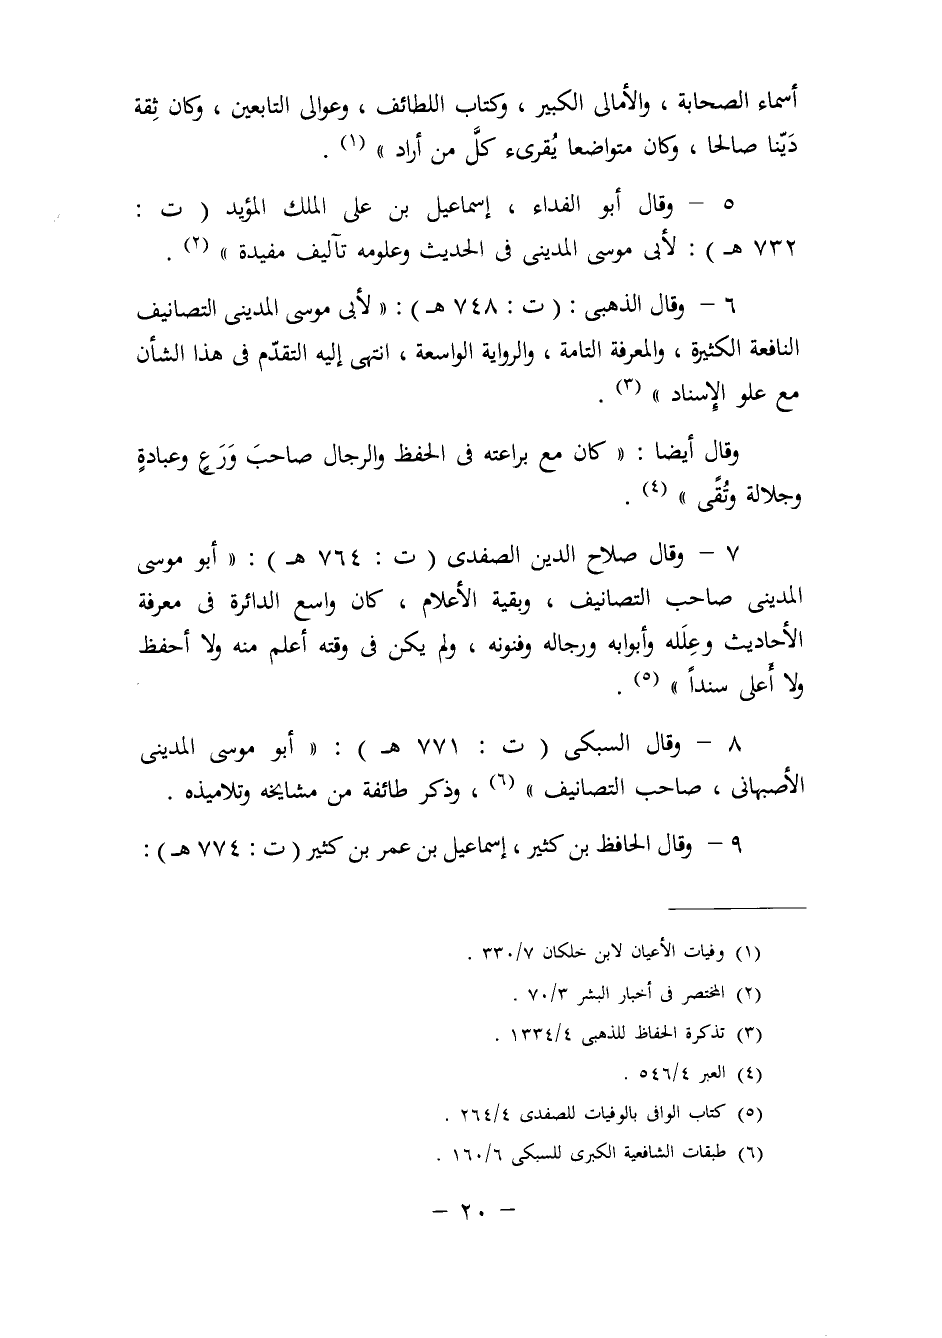 أسماء الصحابة ، والأمالى الكبير ، وكتاب اللطائف ، وعوالى التابعين ، وكان ثِقة
دَيّنا صالحا ، وكان متواضعا يُقرىء كلَّ من أراد » (١) .
٥ – وقال أبو الفداء ، إسماعيل بن على الملك المؤيد ( ت :
٧٣٢ هـ ) : لأبى موسى المدينى فى الحديث وعلومه تآليف مفيدة » (٢) .
٦ – وقال الذهبى : ( ت : ٧٤٨ هـ ) : « لأبى موسى المدينى التصانيف
النافعة الكثيرة ، والمعرفة التامة ، والرواية الواسعة ، انتهى إليه التقدّم فى هذا الشأن
مع علو الإسناد » (٣) .
وقال أيضا : « كان مع براعته فى الحفظ والرجال صاحبَ وَرَعٍ وعبادةٍ
وجلالة وتُقًى » (٤) .
٧ – وقال صلاح الدين الصفدى ( ت : ٧٦٤ هـ ) : « أبو موسى
المدينى صاحب التصانيف ، وبقية الأعلام ، كان واسع الدائرة فى معرفة
الأحاديث وعِلَله وأبوابه ورجاله وفنونه ، ولم يكن فى وقته أعلم منه ولا أحفظ
ولا أَعلى سنداً » (٥) .
٨ – وقال السبكى ( ت : ٧٧١ هـ ) : « أبو موسى المدينى
الأصبهانى ، صاحب التصانيف » (٦) ، وذكر طائفة من مشايخه وتلاميذه .
٩ – وقال الحافظ بن كثير ، إسماعيل بن عمر بن كثير ( ت : ٧٧٤ هـ ) :
(١) وفيات الأعيان لابن خلكان ٣٣٠/٧ .
(٢) المختصر فى أخبار البشر ٧٠/٣ .
(٣) تذكرة الحفاظ للذهبى ١٣٣٤/٤ .
(٤) العبر ٥٤٦/٤ .
(٥) كتاب الوافى بالوفيات للصفدى ٢٦٤/٤ .
(٦) طبقات الشافعية الكبرى للسبكى ١٦٠/٦ .
– ٢٠ –